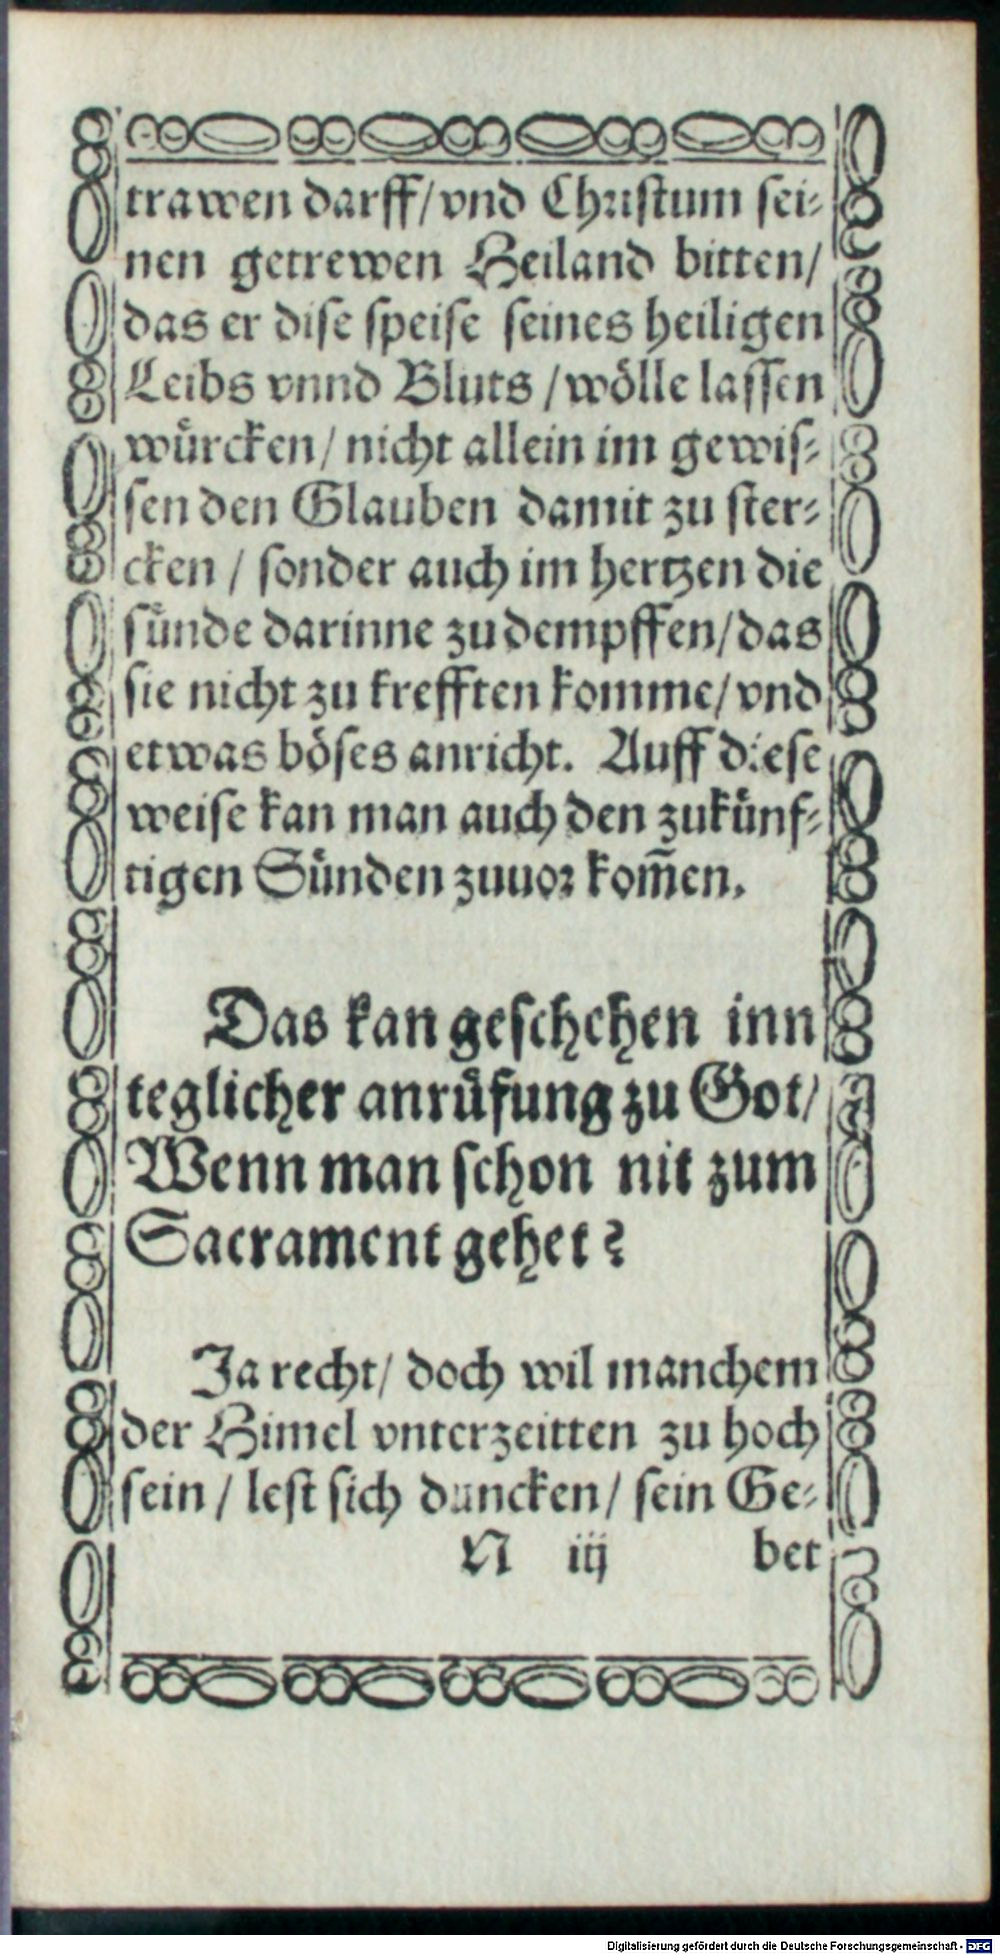 trawen darff/vnd Christum sei-
nen getrewen Heiland bitten/
das er dise speise seines heiligen
Leibs vnnd Bluts /wölle lassen
würcken/ nicht allein im gewis-
sen den Glauben damit zu ster-
cken / sonder auch im hertzen die
sünde darinne zu dempffen/das
sie nicht zu krefften komme/vnd
etwas böses anricht. Auff diese
weise kan man auch den zukünf-
tigen Sünden zuuor kom̄en.
Das kan geschehen inn
teglicher anrüfung zu Got/
Wenn man schon nit zum
Sacrament gehet?
Ja recht/ doch wil manchem
der Himel vnterzeitten zu hoch
sein / lest sich duncken/ sein Ge-
N iij bet
Digitalisierung gefördert durch die Deutsche Forschungsgemeinschaft - DFG